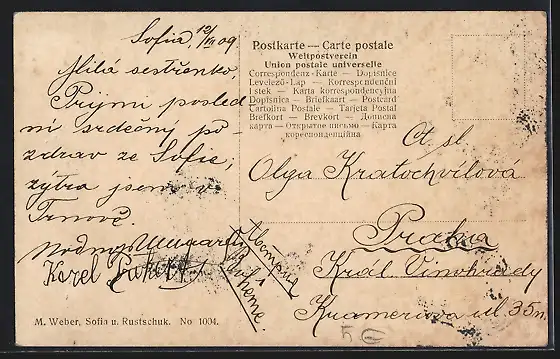 Sofia, 12/III 09
Milá sestřenko,
Prijmi posled
ní srdečný po-
zdrav ze Sofie;
zýtra jsme v
Trnově.
Karel
M. Weber, Sofia u. Rustschuk. No 1004.
Postkarte — Carte postale
Weltpostverein
Union postale universelle
Correspondenz-Karte — Dopisnice
Levelező-Lap — Korrespondenční
listek — Karta korrespondencyjna
Dopisnica — Briefkaart — Postcard
Cartolina Postale — Tarjeta Postal
Brefkort — Brevkort — Дописна
карта — Открытое письмо — Карта
кореспонденційна
Ct. sl.
Olga Kratochvílová
Praha
Král Vinohrady
Krameriova ul 35n
via
Hongrie
Bohême